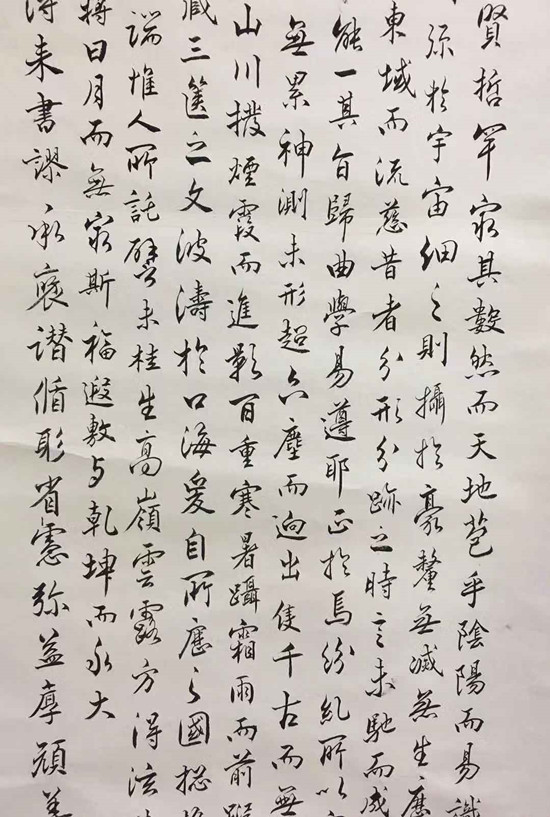 賢哲罕窮其數然而天地苞乎陰陽而易識
弥於宇宙細之則攝於豪釐無滅無生歷
東域而流慈昔者分形分跡之時言未馳而成
能一其旨歸曲學易遵耶正於焉紛糺所以
無累神測未形超六塵而逈出隻千古而無
山川撥煙霞而進影百重寒暑躡霜雨而前蹤
藏三篋之文波濤於口海爰自所歷之國揔
端惟人所託譬夫桂生高嶺雲露方得泫
將日月而無窮斯福遐敷与乾坤而永大
得来書謬承褒讃循躬省慮弥益厚顔善